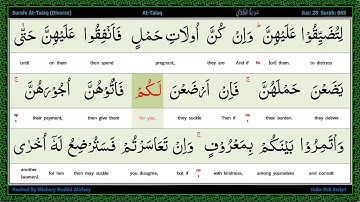 Surah: At-Talaq (Divorce) At-Talaq Juz: 28 Surah: 065
لِتُضَيِّقُوْا عَلَيْهِنَّ ؕ وَاِنْ كُنَّ اُولَاتِ حَمْلٍ فَاَنْفِقُوْا عَلَيْهِنَّ حَتّٰى
until on them then spend pregnant, they are And if them. to distress
يَضَعْنَ حَمْلَهُنَّ ۚ فَاِنْ اَرْضَعْنَ لَكُمْ فَاٰتُوْهُنَّ اُجُوْرَهُنَّ ۚ
their payment, then give them for you, they suckle Then if their burden. they deliver
وَاْتَمِرُوْا بَيْنَكُمْ بِمَعْرُوْفٍ ۚ وَاِنْ تَعَاسَرْتُمْ فَسَتُرْضِعُ لَهٗ اُخْرٰى
another (women). for him then may suckle you disagree, but if with kindness, among yourselves and consult
Recited By Mishary Rashid Alafasy Indo-Pak Script